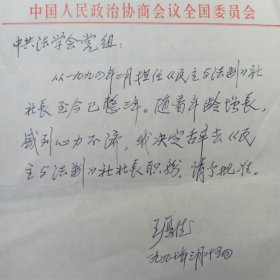 中国人民政治协商会议全国委员会
中共法学会党组：
从一九九四年二月担任《民主与法制》社
社长至今已整三年。随着年龄增长，
感到心力不济，我决定辞去《民
主与法制》社社长职务，请予批准。
王厚德
一九九七年三月二十五日